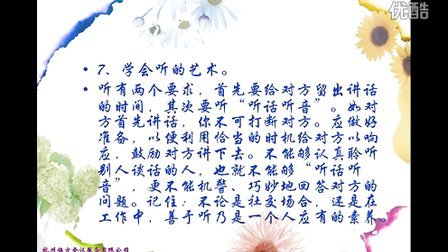 优酷
7、学会听的艺术。
听有两个要求，首先要给对方留出讲话
的时间，其次要听“听话听音”。如对
方首先讲话，你不可打断对方。应做好
准备，以便利用恰当的时机给对方以响
应，鼓励对方讲下去。不能够认真聆听
别人谈话的人，也就不能够“听话听
音”，更不能机警、巧妙地回答对方的
问题。记住：不论是社交场合，还是在
工作中，善于听乃是一个人应有的素养。